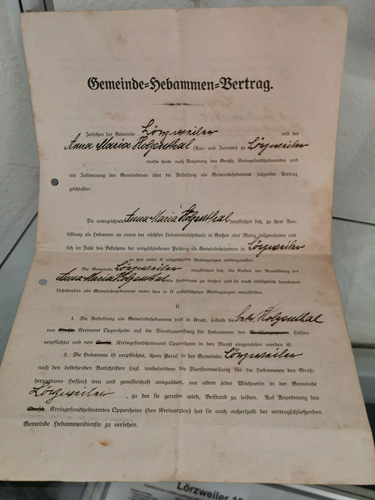 Gemeinde-Hebammen-Vertrag.
Zwischen der Gemeinde Lörzweiler und der
Anna Maria Holzenthal (Vor- und Zuname) zu Lörzweiler
wurde heute nach Anhörung des Großh. Kreisgesundheitsamtes und
mit Zustimmung des Gemeinderats über die Anstellung als Gemeindehebamme folgender Vertrag
geschlossen:
Die unterzeichnete Anna Maria Holzenthal verpflichtet sich, zu ihrer Aus-
bildung als Hebamme an einem der nächsten Hebammenlehrkurse in Gießen oder Mainz teilzunehmen und
sich im Falle des Bestehens der vorgeschriebenen Prüfung als Gemeindehebamme in Lörzweiler
zu den unter II aufgeführten Bedingungen niederzulassen.
Die Gemeinde Lörzweiler verpflichtet sich, die Kosten der Ausbildung der
Anna Maria Holzenthal
Lehrkursus als Gemeindehebamme unter den in II aufgeführten Bedingungen anzustellen.
II.
1. Die Anstellung als Gemeindehebamme tritt in Kraft, sobald die Holzenthal
vom Großh. Kreisamt Oppenheim auf die Dienstanweisung für Hebammen des Hessen
verpflichtet und von dem Großh. Kreisgesundheitsamt Oppenheim in den Dienst eingewiesen worden ist.
2. Die Hebamme ist verpflichtet, ihren Beruf in der Gemeinde Lörzweiler
nach den bestehenden Vorschriften (vgl. insbesondere die Dienstanweisung für die Hebammen des Groß-
herzogtums Hessen) treu und gewissenhaft auszuüben, vor allem jeder Wöchnerin in der Gemeinde
Lörzweiler, zu der sie gerufen wird, Beistand zu leisten. Auf Anordnung des
Großh. Kreisgesundheitsamtes Oppenheim (des Kreisarztes) hat sie auch außerhalb der vertragschließenden
Gemeinde Hebammendienste zu versehen.
Lörzweiler